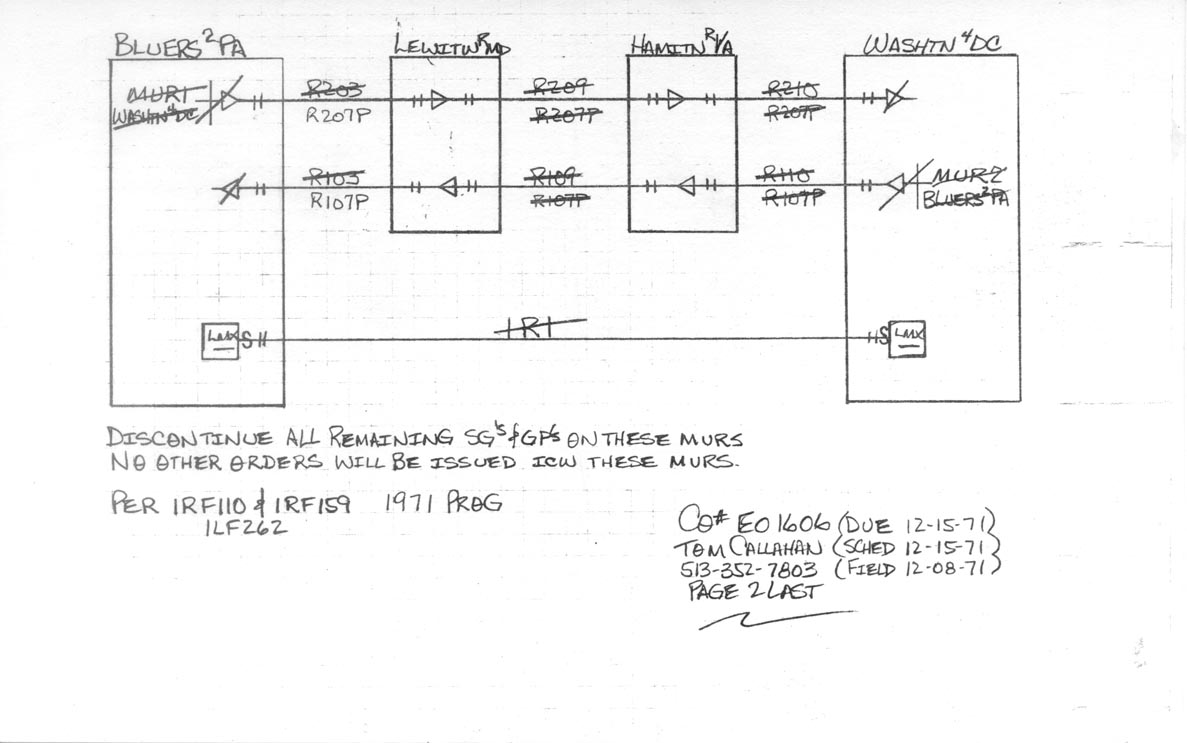 BLUERS²PA
LEWITWᴿMD
HAMITNᴿVA
WASHTN⁴DC
MUR1
WASHTN⁴DC
R203
R207P
R209
R207P
R210
R207P
R103
R107P
R109
R107P
R110
R107P
MUR2
BLUERS²PA
LMX S
1R1
S LMX
DISCONTINUE ALL REMAINING SG'S & GP'S ON THESE MURS
NO OTHER ORDERS WILL BE ISSUED ICW THESE MURS.
PER 1RF110 & 1RF159 1971 PROG
1LF262
CO# EO1606 (DUE 12-15-71)
TOM CALLAHAN (SCHED 12-15-71)
513-352-7803 (FIELD 12-08-71)
PAGE 2 LAST